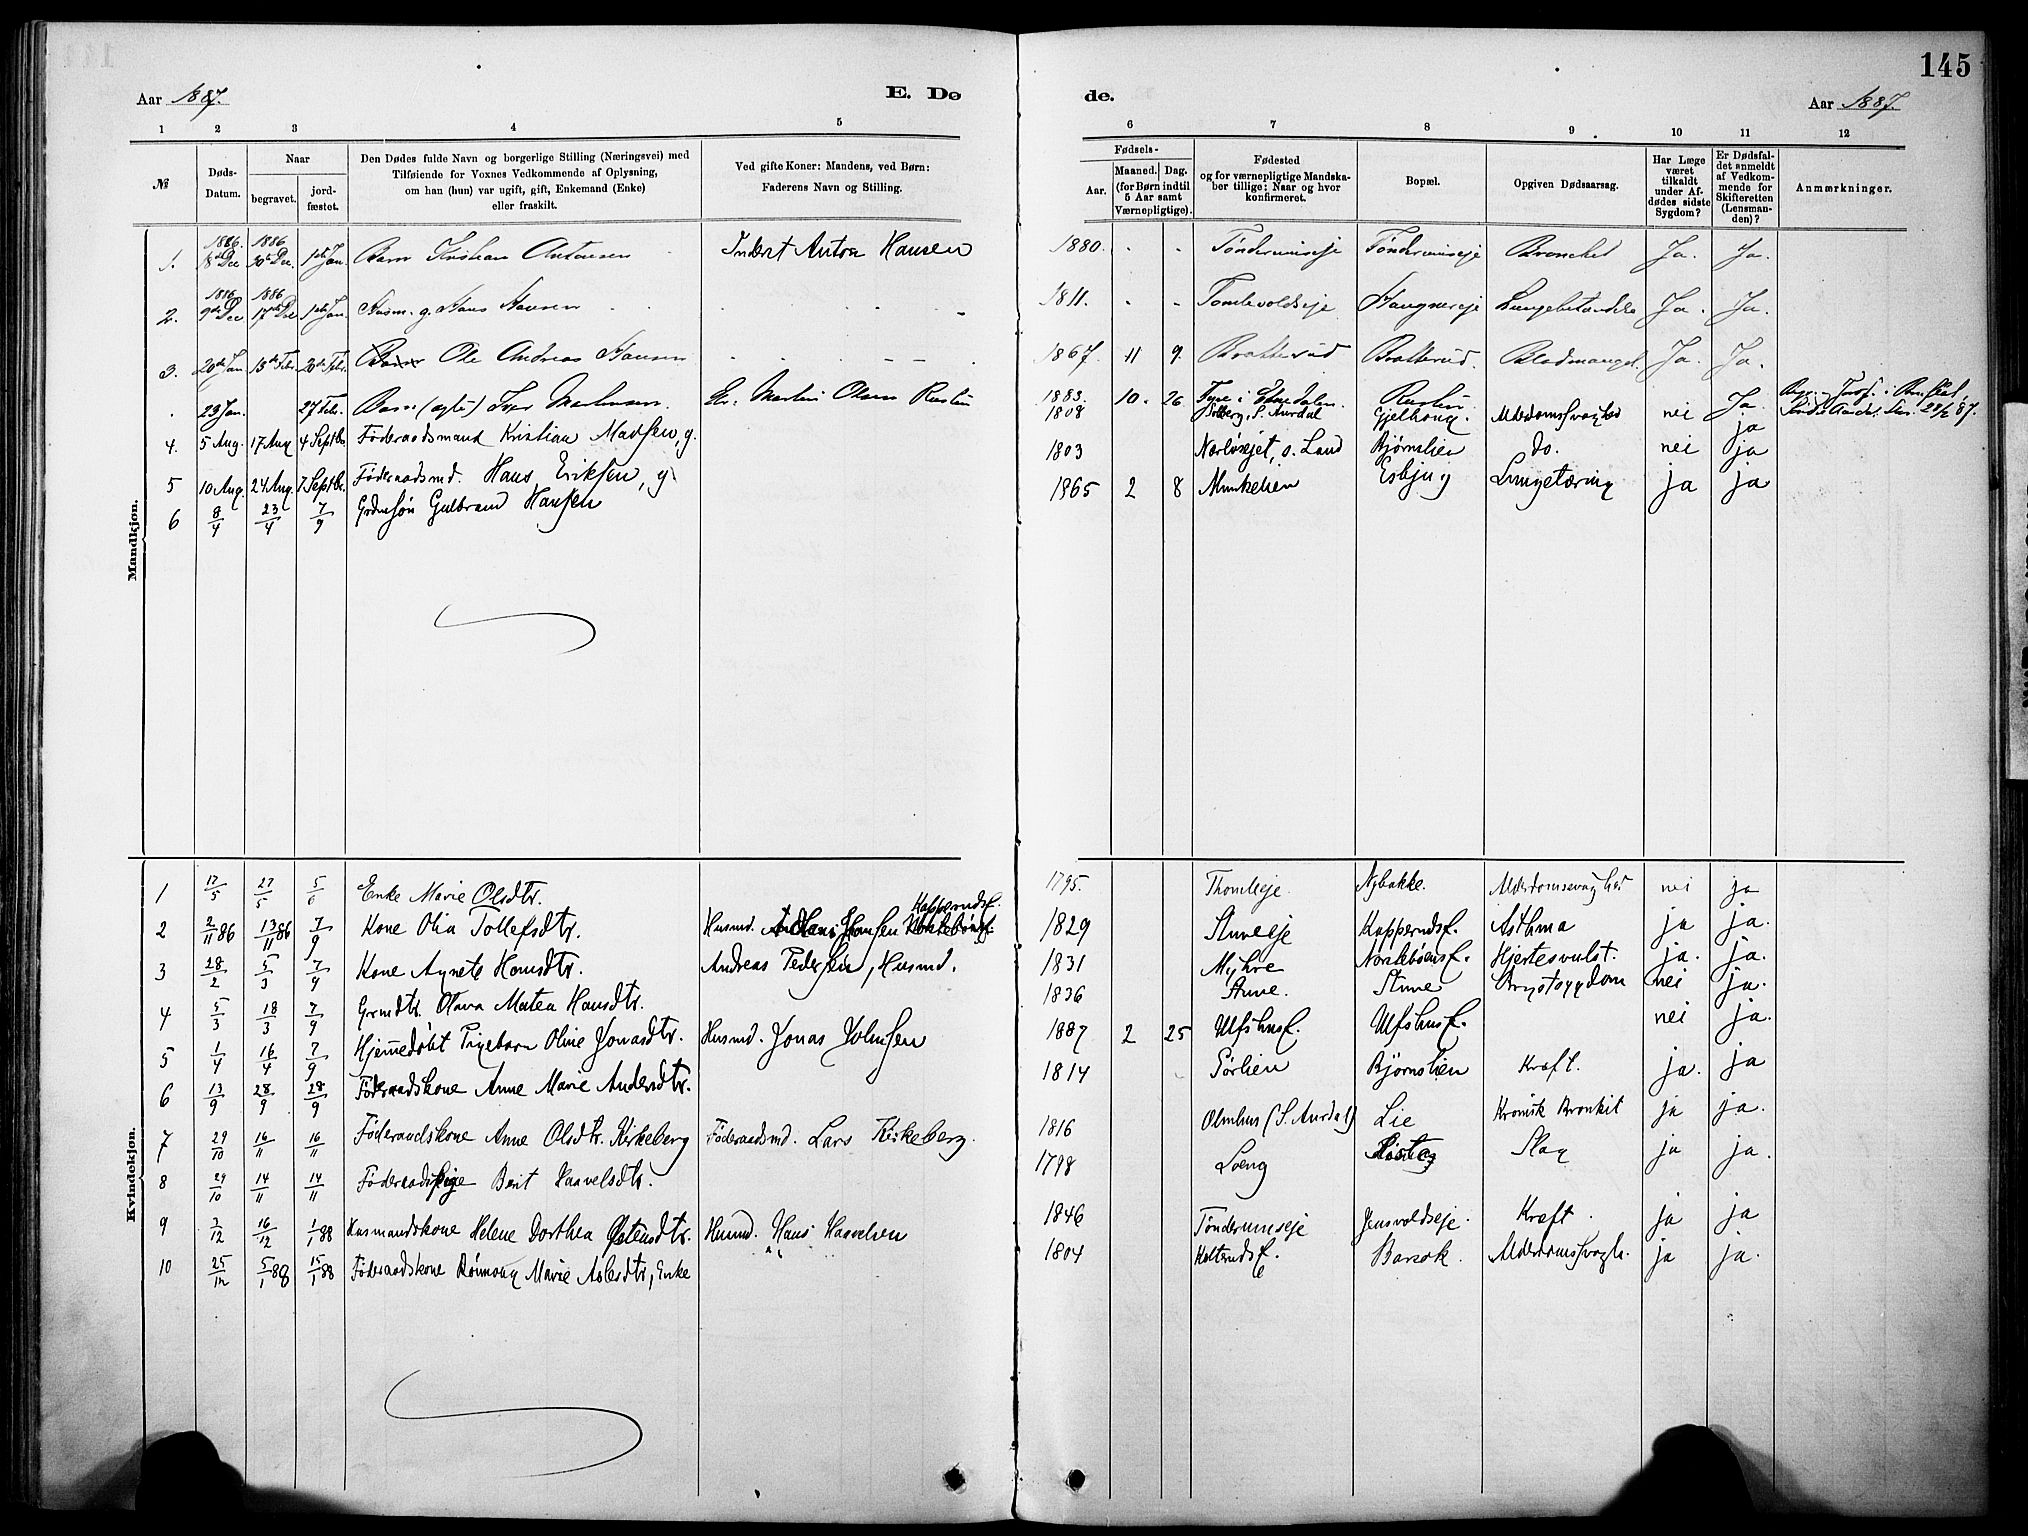 145
Aar 1887. E. Dø de. Aar 1887.
1 2 3 4 5 6 7 8 9. 10 11 12
№
Døds-Datum.
Naar
begravet. jordfæstet.
Den Dødes fulde Navn og borgerlige Stilling (Næringsvei) med
Tilføiende for Voxnes Vedkommende af Oplysning,
om han (hun) var ugift, gift, Enkemand (Enke)
eller fraskilt.
Ved gifte Koner: Mandens, ved Børn:
Faderens Navn og Stilling.
Fødsels-
Aar. Maaned. Dag.
(for Børn indtil
5 Aar samt
Værnepligtige).
Fødested
og for værnepligtige Mandskaber tillige: Naar og hvor
konfirmeret.
Bopæl.
Opgiven Dødsaarsag.
Har Læge
været
tilkaldt
under Afdødes sidste
Sygdom?
Er Dødsfaldet anmeldt
af Vedkommende for
Skifteretten
(Lensmanden)?
Anmærkninger.
Mandkjøn.
1. 1886. 18de Dec 1886 30te Dec. 1ste Jan. Barn Kristian Antonsen Inderst Anton Hansen 1880. - - Tønderumseje Tønderumseje Bronchit Ja. Ja.
2. 1886 9de Dec 1886 17de Dec 1ste Jan. Husm. g. Hans Hansen 1811. - - Tomlevoldseje Haugnerseje Ja. Ja.
3. 20de Jan 13de Feb. 20de Febr. Barn Ole Andreas Hansen 1867. 11 9. Bratterud Bratterud. Blodmangel Ja. Ja.
. 23 Jan. 27 Febr. Barn (ægte) Iver Martinsen. Martin Olsen Rustin 1883. 10. 26 i Etnedalen. Rustin Ja
4. 5 Aug. 17 Aug 4 Septbr. Føderaadsmand Kristian Madsen, g. 1808 S. Aurdal Gjelhaug. Alderdomssvaghed nei ja
5 10 Aug. 24 Aug. 7 Septbr. Føderaadsmd. Hans Eriksen, g. 1803 s. Land Bjørnslien do. nei ja
6 8/4 23/4 7/9 Grdmsøn Gulbrand Hansen 1865 2 8 Munkelien Esbjug Lungetæring ja ja
Kvindekjøn.
1 17/5 27/5 5/6 Enke Marie Olsdtr. 1795. Thomleje. Nybakke. Alderdomssvaghed nei ja
2 2/11 86 13/11 86 7/9 Kone Olia Tollefsdtr. Husmd. Hans Hansen Kopperudsf. 1829 Stuveeje Kopperudsf. Asthma ja ja.
3 28/2 5/3 7/9 Kone Agnete Hansdtr. Andreas Pedersen, Husmd. 1831 Myhre Norskebøensf. Hjertesvulst. ja. ja.
4 5/3 18/3 7/9 Grmdtr. Olava Matea Hansdtr. 1836 Stuve. Stuve Brystsygdom nei ja.
5 1/4 16/4 7/9 Hjemmedøbt Pigebarn Oline Jonasdtr. Husmd. Jonas Johnsen 1887 2 25 Ulfshusf. Ulfshusf. nei ja.
6 13/9 28/9 28/9 Føderaadskone Anne Marie Andersdtr. 1814 Sørlien Bjørnslien Kræft. ja. ja
7 29/10 16/11 16/11 Føderaadskone Anne Olsdtr. Kirkeberg Føderaadsmd. Lars Kirkeberg. 1816 Olmhus (S. Aurdal) Lie Kronisk Bronkit ja ja.
8 29/10 14/11 14/11 Føderaadspige Berit Haavelsdtr. 1798 Loeng Slag ja ja.
9 3/12 16/12 1/1 88 Husmandskone Helene Dorthea Østensdtr. Husmd. Hans Haavelsen 1846 Tønderumseje Jensvoldseje. Kræft. ja ja
10 25/12 5/1 88 15/1 88 Føderaadskone Rønnoug Marie Aslesdtr, Enke 1804 Holterudsf. Barsok. Alderdomssvagh. ja ja.